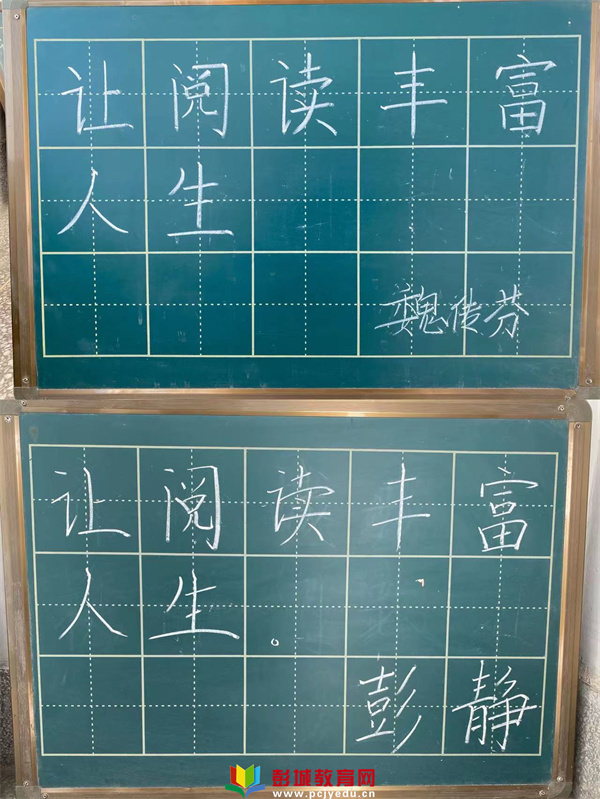 让阅读丰富
人生
魏传芬
让阅读丰富
人生。
彭静
彭城教育网
www.pcjyedu.cn